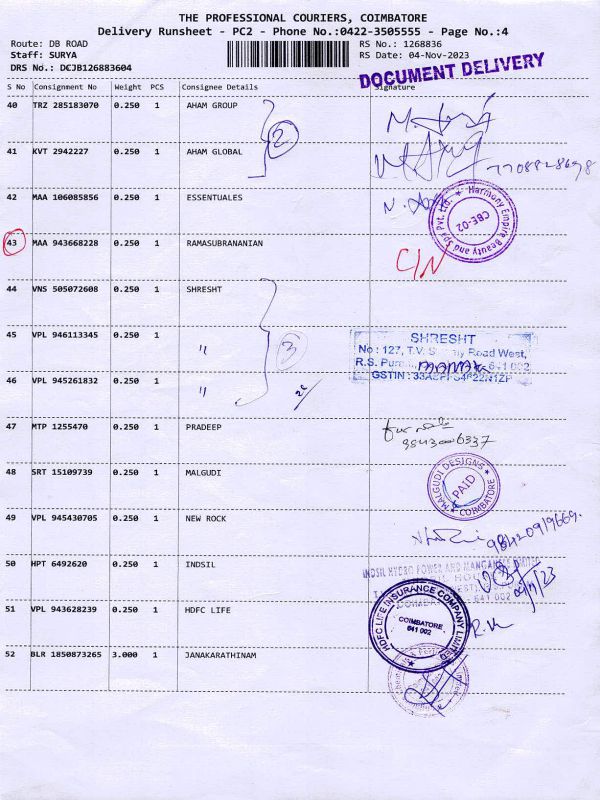 THE PROFESSIONAL COURIERS, COIMBATORE
Delivery Runsheet - PC2 - Phone No.:0422-3505555 - Page No.:4
Route: DB ROAD RS No.: 1268836
Staff: SURYA RS Date: 04-Nov-2023
DRS No.: DCJB126883604
DOCUMENT DELIVERY
S No Consignment No Weight PCS Consignee Details Signature
40 TRZ 285183070 0.250 1 AHAM GROUP
2
41 KVT 2942227 0.250 1 AHAM GLOBAL
7708828698
42 MAA 106085856 0.250 1 ESSENTUALES
Harmony Empire Beauty and Spa Pvt. Ltd. ★
CBE-02
43 MAA 943668228 0.250 1 RAMASUBRANANIAN
C/N
44 VNS 505072608 0.250 1 SHRESHT
45 VPL 946113345 0.250 1 "
3
SHRESHT
No : 127, T.V. Road West,
R.S. 641 002
GSTIN :
46 VPL 945261832 0.250 1 "
47 MTP 1255470 0.250 1 PRADEEP
9843006337
48 SRT 15109739 0.250 1 MALGUDI
MALGUDI DESIGNS
PAID
★ COIMBATORE ★
49 VPL 945430705 0.250 1 NEW ROCK
98420919669.
50 HPT 6492620 0.250 1 INDSIL
INDSIL HYDRO POWER AND MANGANESE LIMITED
641 002
04/11/23
51 VPL 943628239 0.250 1 HDFC LIFE
HDFC LIFE INSURANCE COMPANY LIMITED
COIMBATORE
641 002
★
R.K
52 BLR 1850873265 3.000 1 JANAKARATHINAM